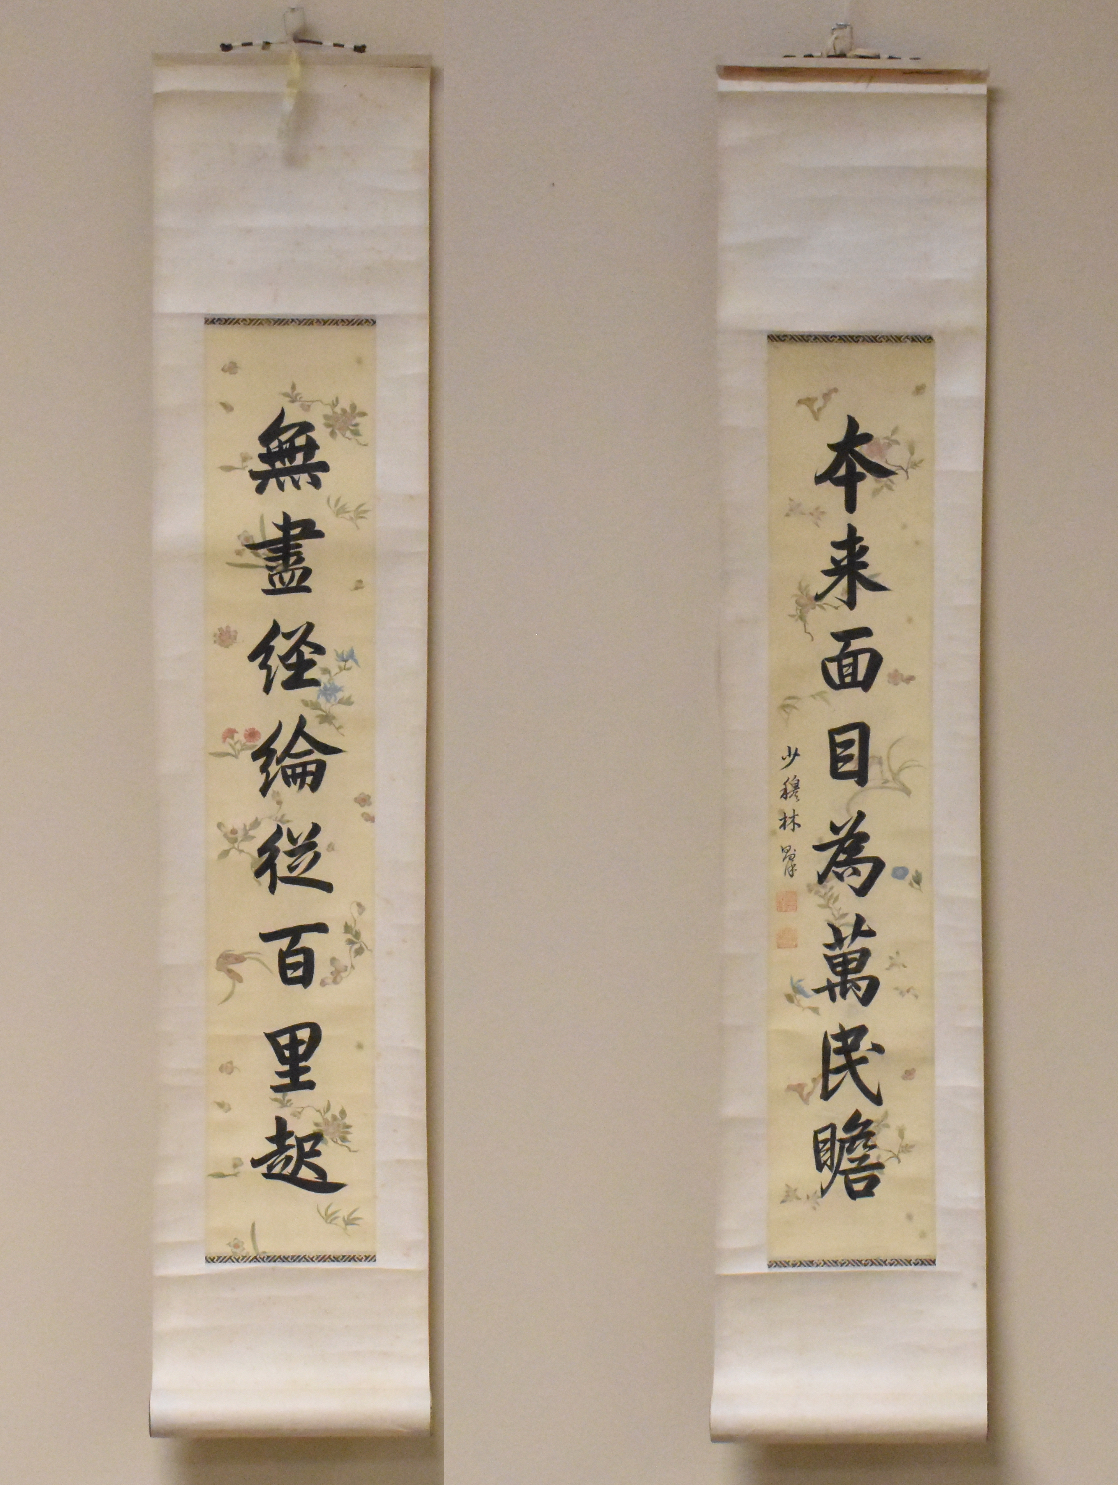 無盡経綸従百里起
本来面目為萬民瞻
少穆林